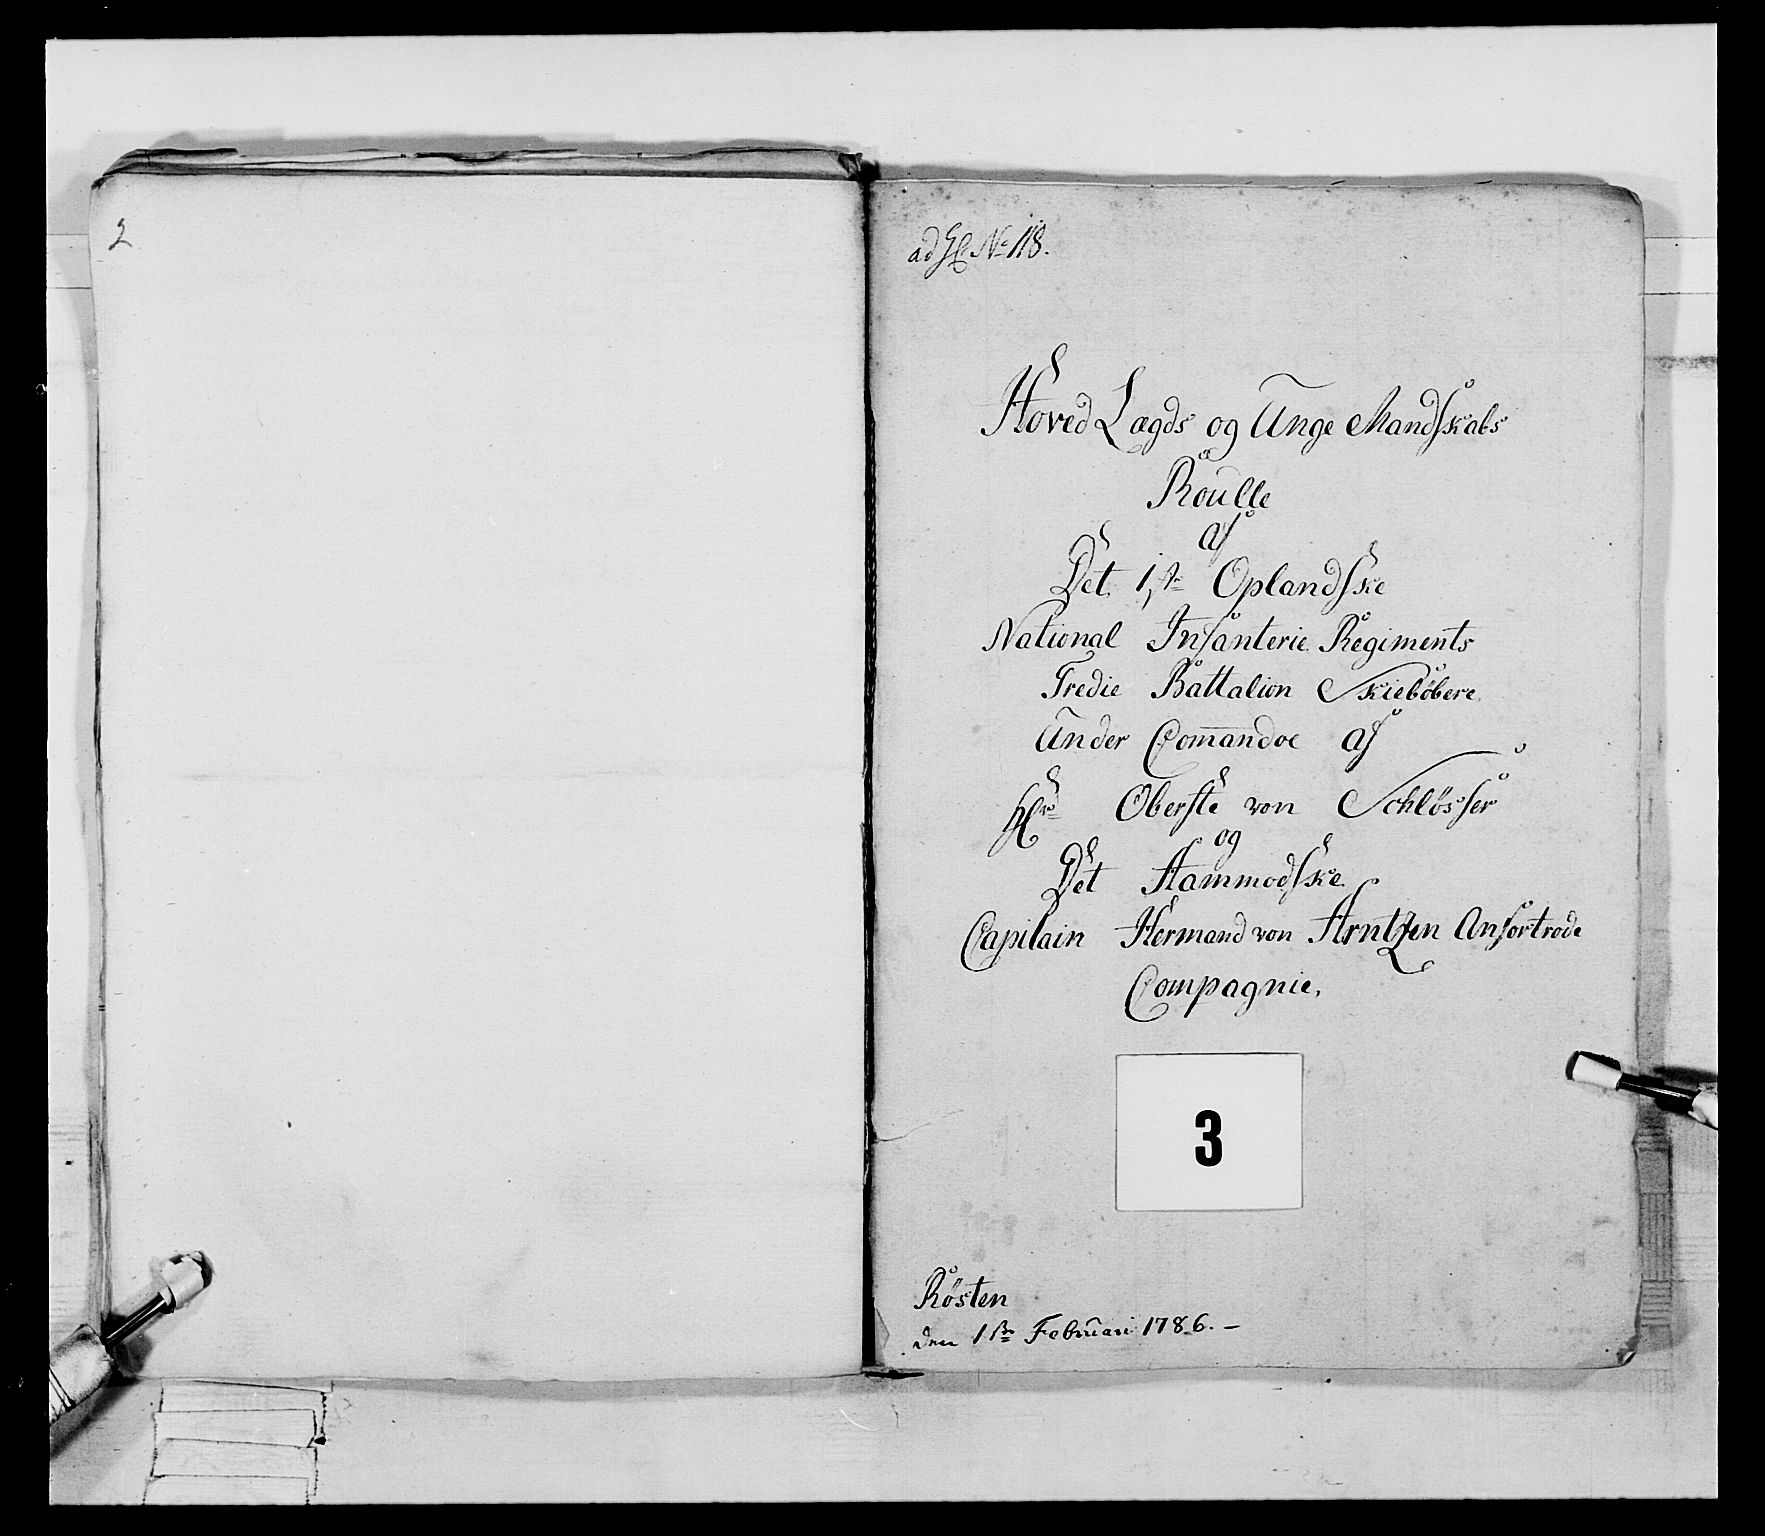 2
ad No 118.
Hoved Lægds og Unge Mandskabs
Roulle
af
Det 1ste Oplandske
National Infanterie Regiments
Tredie Battalion Skielöbere
Under Com̄andoe af
Hr Oberste von Schlösser
og
Det Hammodske
Capitain Hermand von Arntzen Anfortrode
Compagnie,
3
Rösten
den 1ste Februari 1786. –